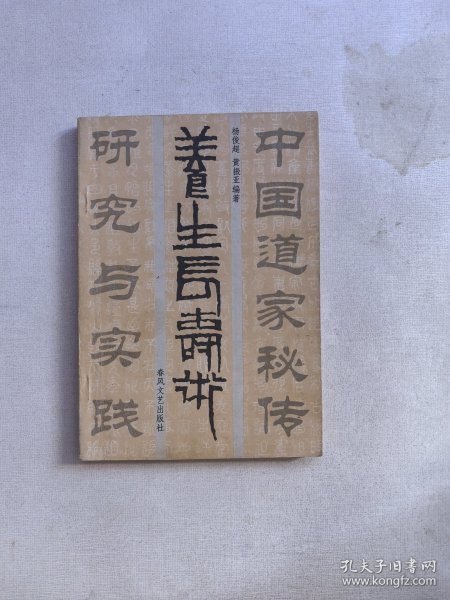 中国道家秘传
养生长寿术
研究与实践
杨俊超 黄振亚编著
春风文艺出版社
孔夫子旧书网
www.kongfz.com